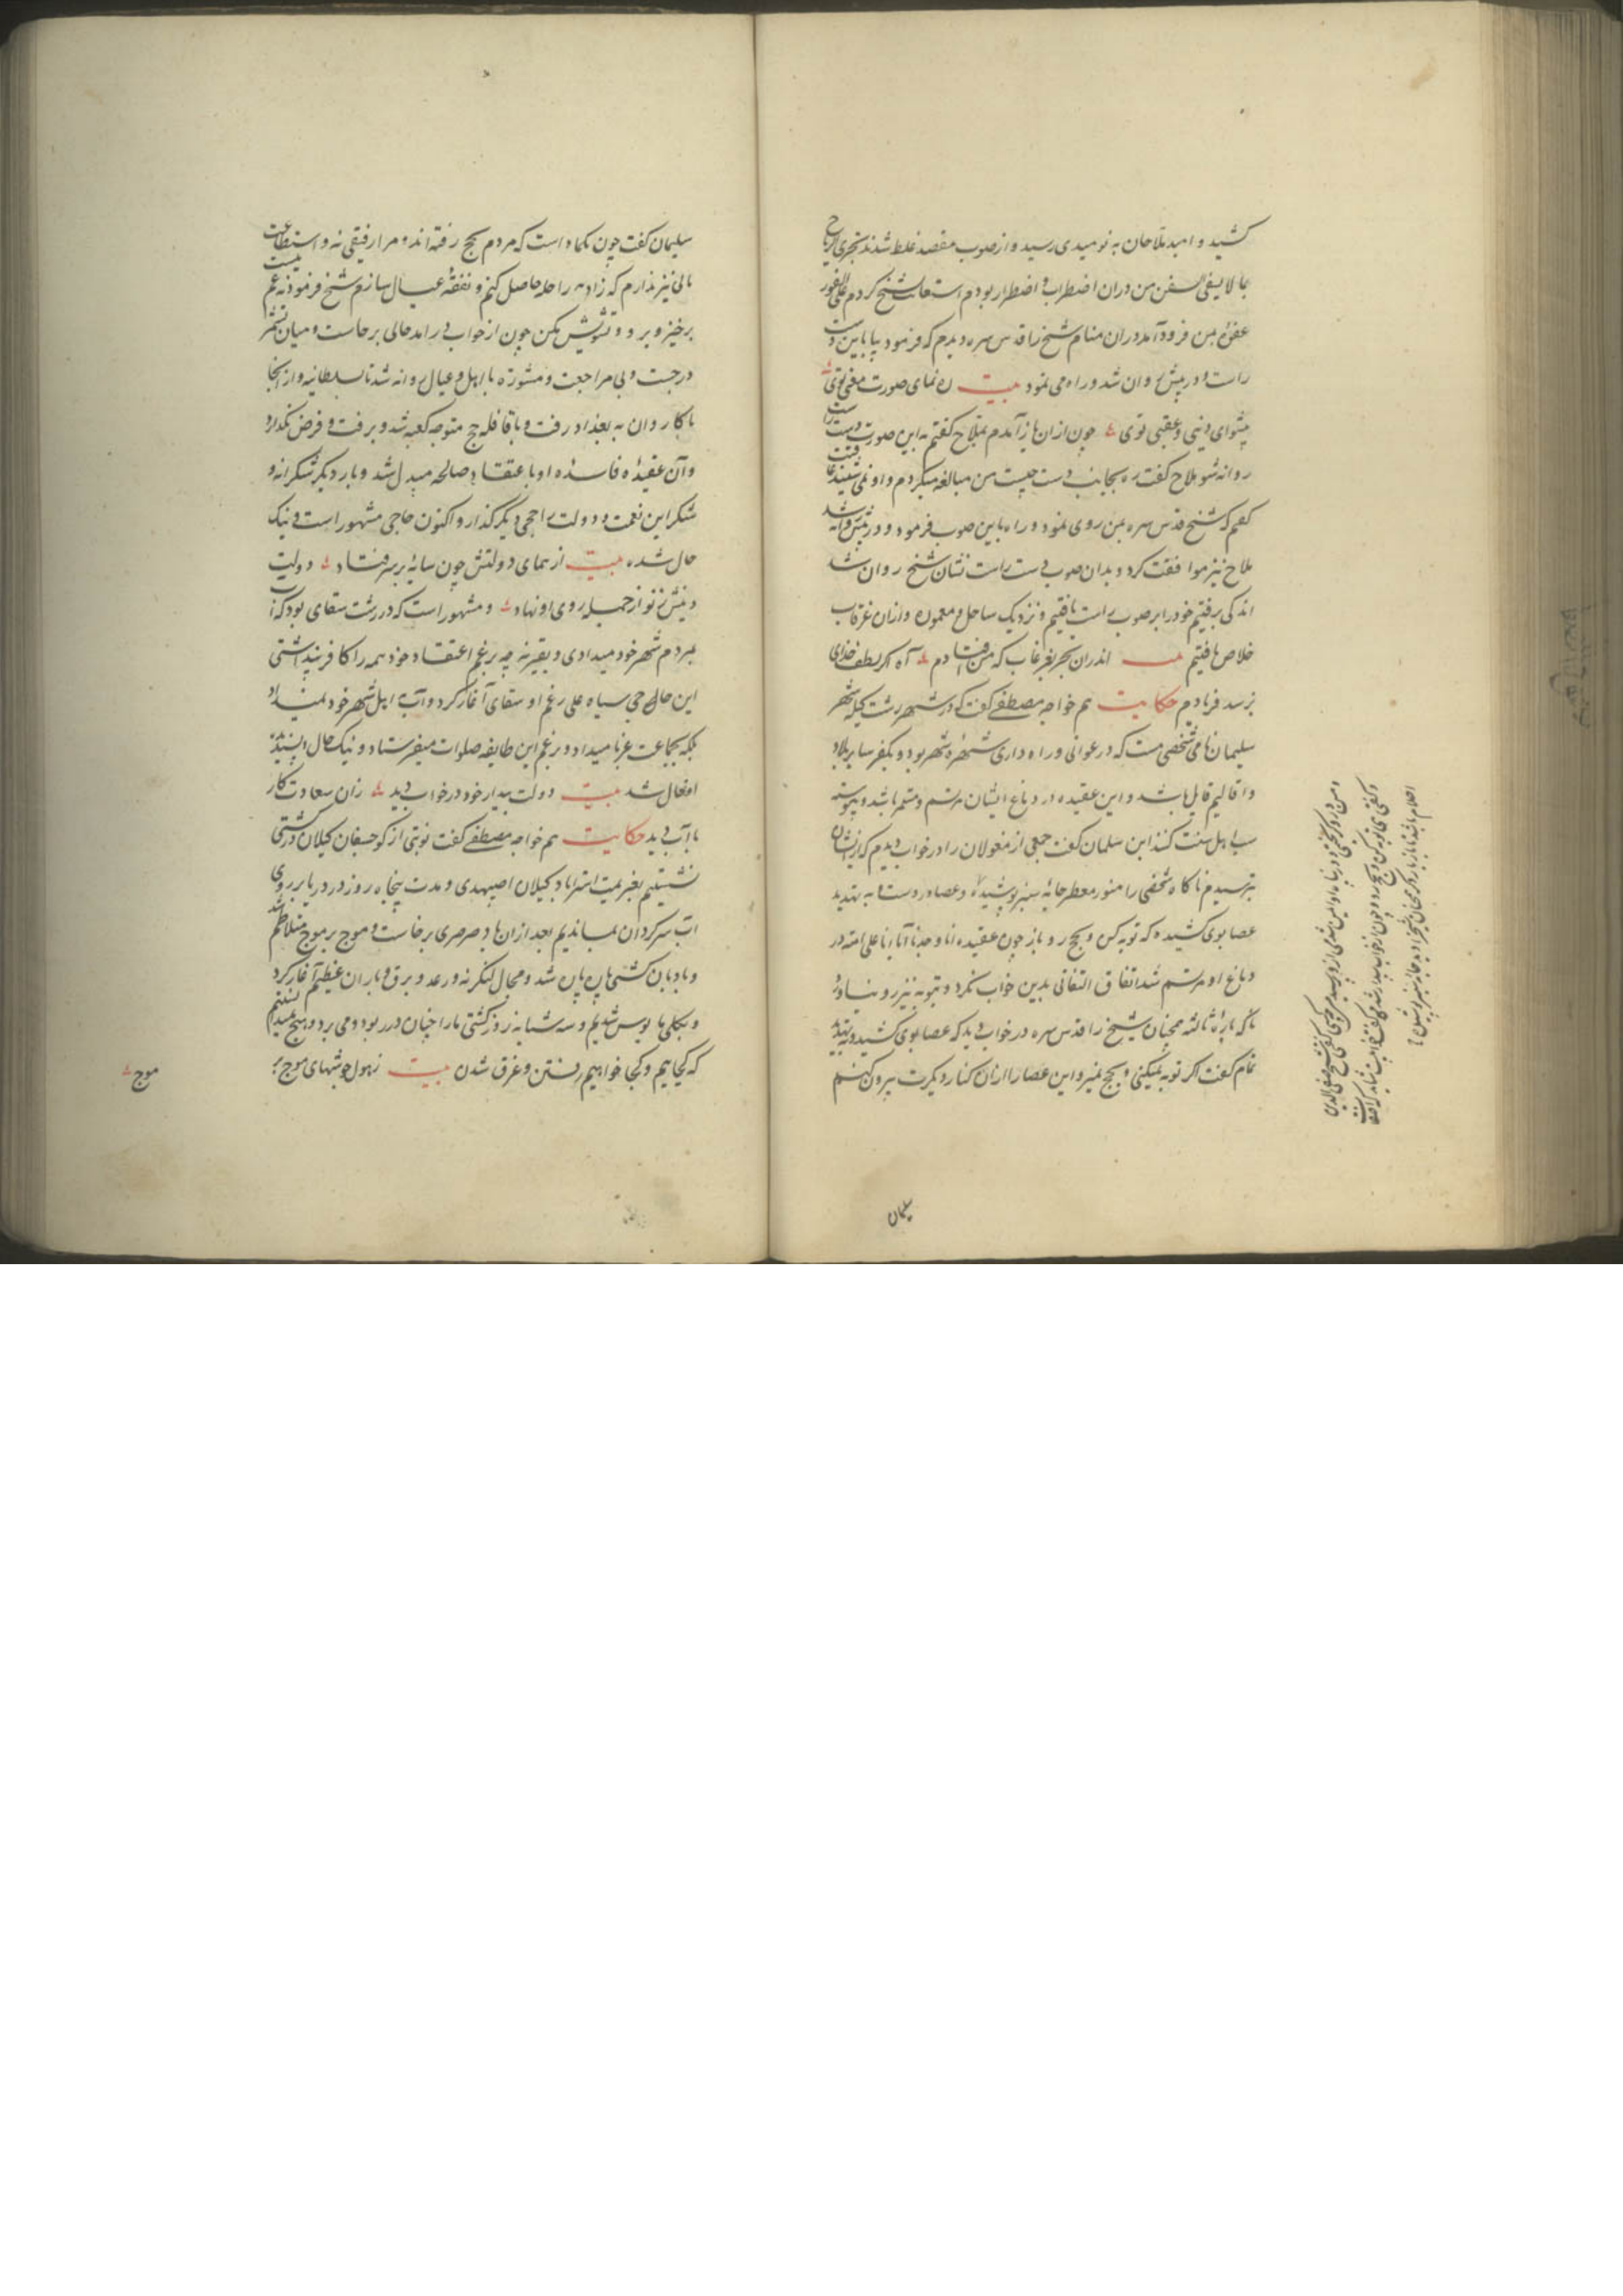 کشید و امید ملاحان به نومیدی رسید و از صوب مقصد غلط شدند تجری الریاح
بما لا یشتهی السفن من در ان اضطراب و اضطرار بودم استعانت بشیخ کردم علی الفور
غفوه بمن فرود آمد در ان منام شیخ را قدس سره دیدم که فرمود بیا باین دست
راست و در پیش روان شد و راه می نمود بیت ره نمای صورت و معنی توی
پیشوای دینی و عقبی توی چون از ان باز آمدم بملاح گفتم به این صورت دست راست
روانه شو ملاح گفت ره بجانب دست چپست من مبالغه میکردم و او نمی شنید عاقبت
گفتم که شیخ قدس سره بمن روی نمود و راه باین صوب فرمود و در پیش روانه شد
ملاح نیز موافقت کرد و بدان صوب دست راست نشان شیخ روان شد
اندکی برفتیم خود را بر صوب راست یافتیم و نزدیک ساحل و معموره و از ان غرقاب
خلاص یافتیم بیت اندران بحر بغرقاب که من افتادم آه اگر لطف خدای
نرسد فریادم حکایت هم خواجه مصطفی گفت که در شهر رشت گیله شهر
سلیمان نامی شخصی هست که در عوانی و راه داری شهره شهر بود و بکفر سایر بلاد
و اقالیم قایل باشد و این عقیده در دماغ ایشان مرتسم و مستمر باشد و پیوسته
سب اهل سنت کنند این سلیمان گفت جمعی از مغولان را در خواب دیدم که از ایشان
بترسیدم ناگاه شخصی را منور معطر جامه سبز پوشیده و عصا در دست به تهدید
عصا بوی کشیده که توبه کن و بحج رو باز چون عقیده انا وجدنا آباءنا علی امة در
دماغ او مرتسم شد اتفاق التفاتی بدین خواب نکرد و بتوبه نیز رو نیاورد
تا که باراة ثالثه همچنان شیخ را قدس سره در خواب دید که عصا بوی کشید و بتهدید
تمام گفت اگر توبه نمیکنی و بحج نمیروی این عصا را از ان کنار دیگرت بیرون کنم
سلیمان
سلیمان گفت چون یکماه است که مردم بحج رفته اند و مرا رفیقی نه و استطاعت
مالی نیز ندارم که زاد و راحله حاصل کنم و نفقه عیال سازم شیخ فرمود غم نیست
برخیز و برو و تشویش مکن چون از خواب در امد حالی برخاست و میان تشمر
در بست و بی مراجعت و مشورة با اهل و عیال روانه شد تا بسلطانیه و از انجا
با کاروان به بغداد رفت و با قافله حج متوجه کعبه شد و برفت و فرض بگذارد
و آن عقیده فاسده او با عتقاد صالحه مبدل شد و بار دیگر شکرانه و
شکر این نعمت و دولت را حجی دیگر گذارد و اکنون حاجی مشهور است و نیک
حال شده بیت از همای دولتش چون سایه بر سر فتاد دولت
دینش ز نو از جمله روی او نهاد و مشهور است که در رشت سقای بود که آب
بمردم شهر خود میدادی و بغیر نه چه برغم اعتقاد خود همه را کافر پنداشتی
این حاجی سیاه علی رغم او سقای آغاز کرد و آب باهل شهر خود نمیداد
بلکه بجماعت غربا میداد و برغم این طایفه صلوات میفرستاد و نیک حال و پسندیده
افعال شد بیت دولت بیدار خود در خواب دید زان سعادت کار
با آب دید حکایت هم خواجه مصطفی گفت نوبتی از کوچسفان کیلان در کشتی
نشستیم بعزیمت استراباد کیلان اصپهبدی و مدت پنجاه روز در دریا بر روی
اب سرگردان بماندیم بعد از ان باد صرصری برخاست و موج بر موج متلاطم شد
و بادبان کشتی پاره پاره شد و مجال لنکر نه و رعد و برق و باران عظیم آغاز کرد
و بکلی مایوس شدیم و سه شبانه روز کشتی ما را چنان در ربود و می برد و هیچ نمیدانستیم
که کجاییم و کجا خواهیم رفتن و غرق شدن بیت ز هول جوشهای موج
موج